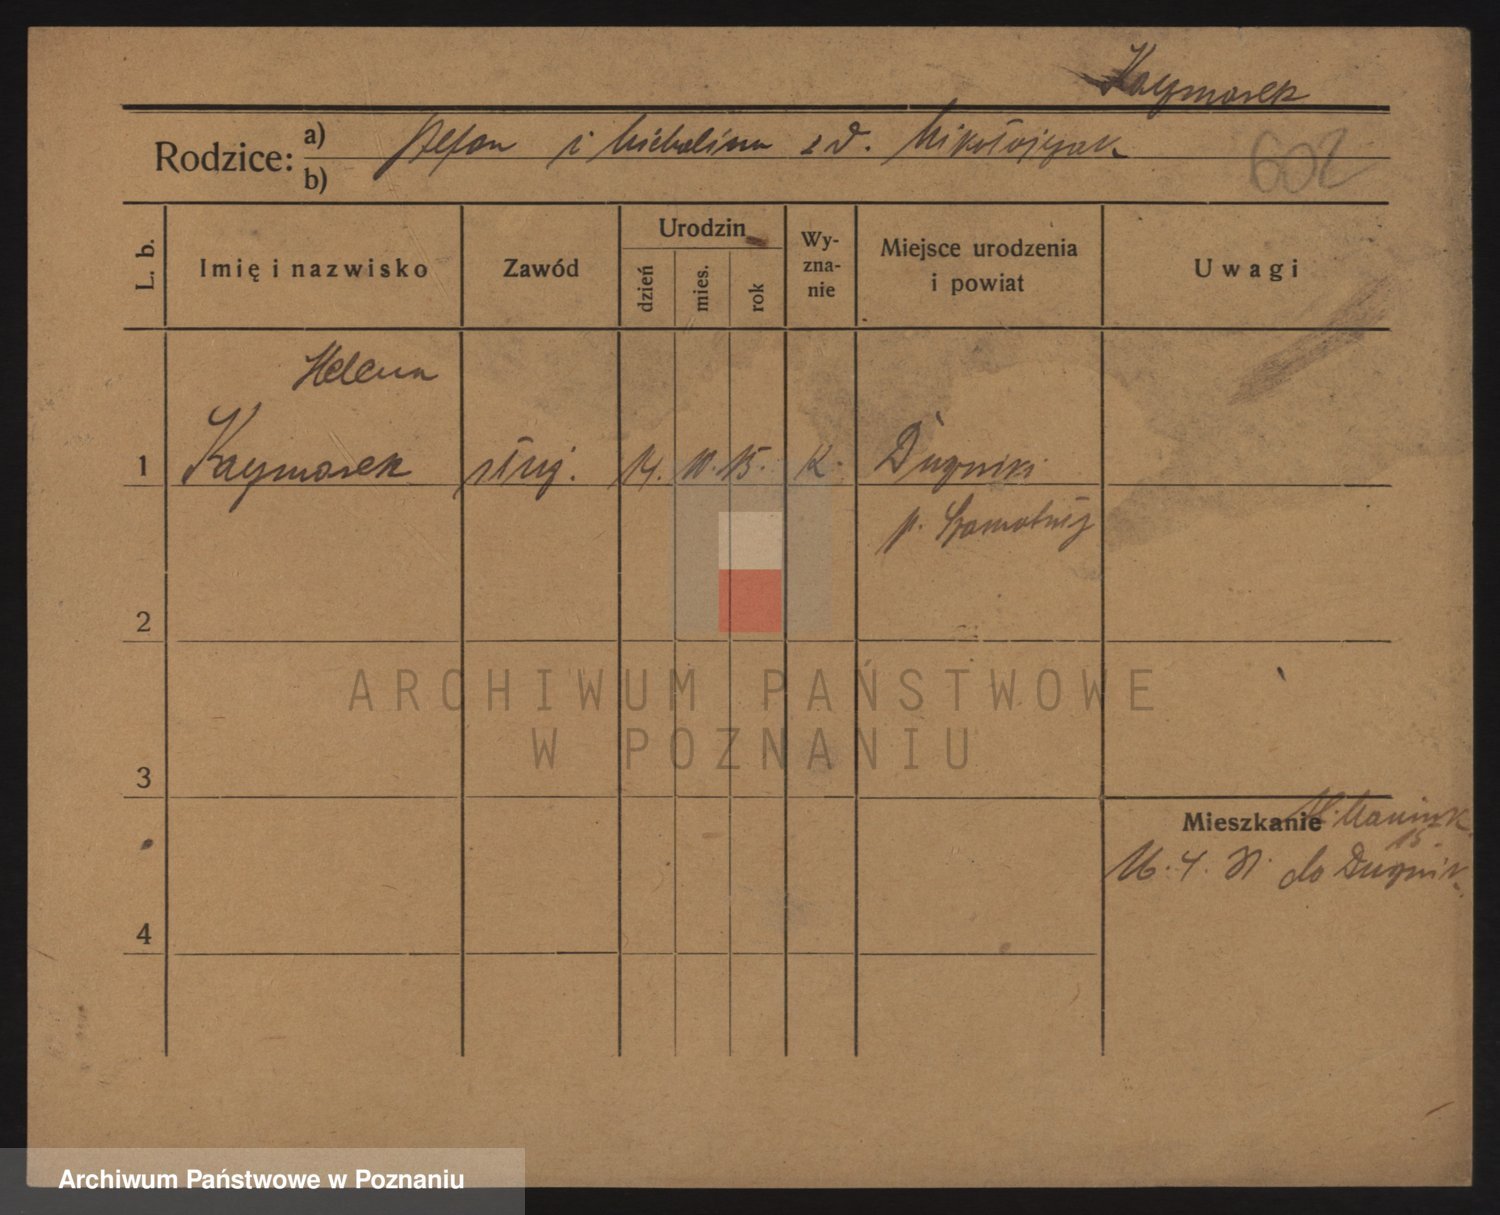 Kaczmarek
Rodzice: a) Stefan i Michalina z d. Mikołajczak
b)
602
L. b.
Imię i nazwisko
Zawód
Urodzin
dzień
mies.
rok
Wy-
zna-
nie
Miejsce urodzenia
i powiat
Uwagi
Helena
1 Kaczmarek służ. 14. 11. 15. K.
p. Szamotuły
2
ARCHIWUM PAŃSTWOWE
W POZNANIU
3
Mieszkanie
15.
16. 4. 31. do
4
Archiwum Państwowe w Poznaniu